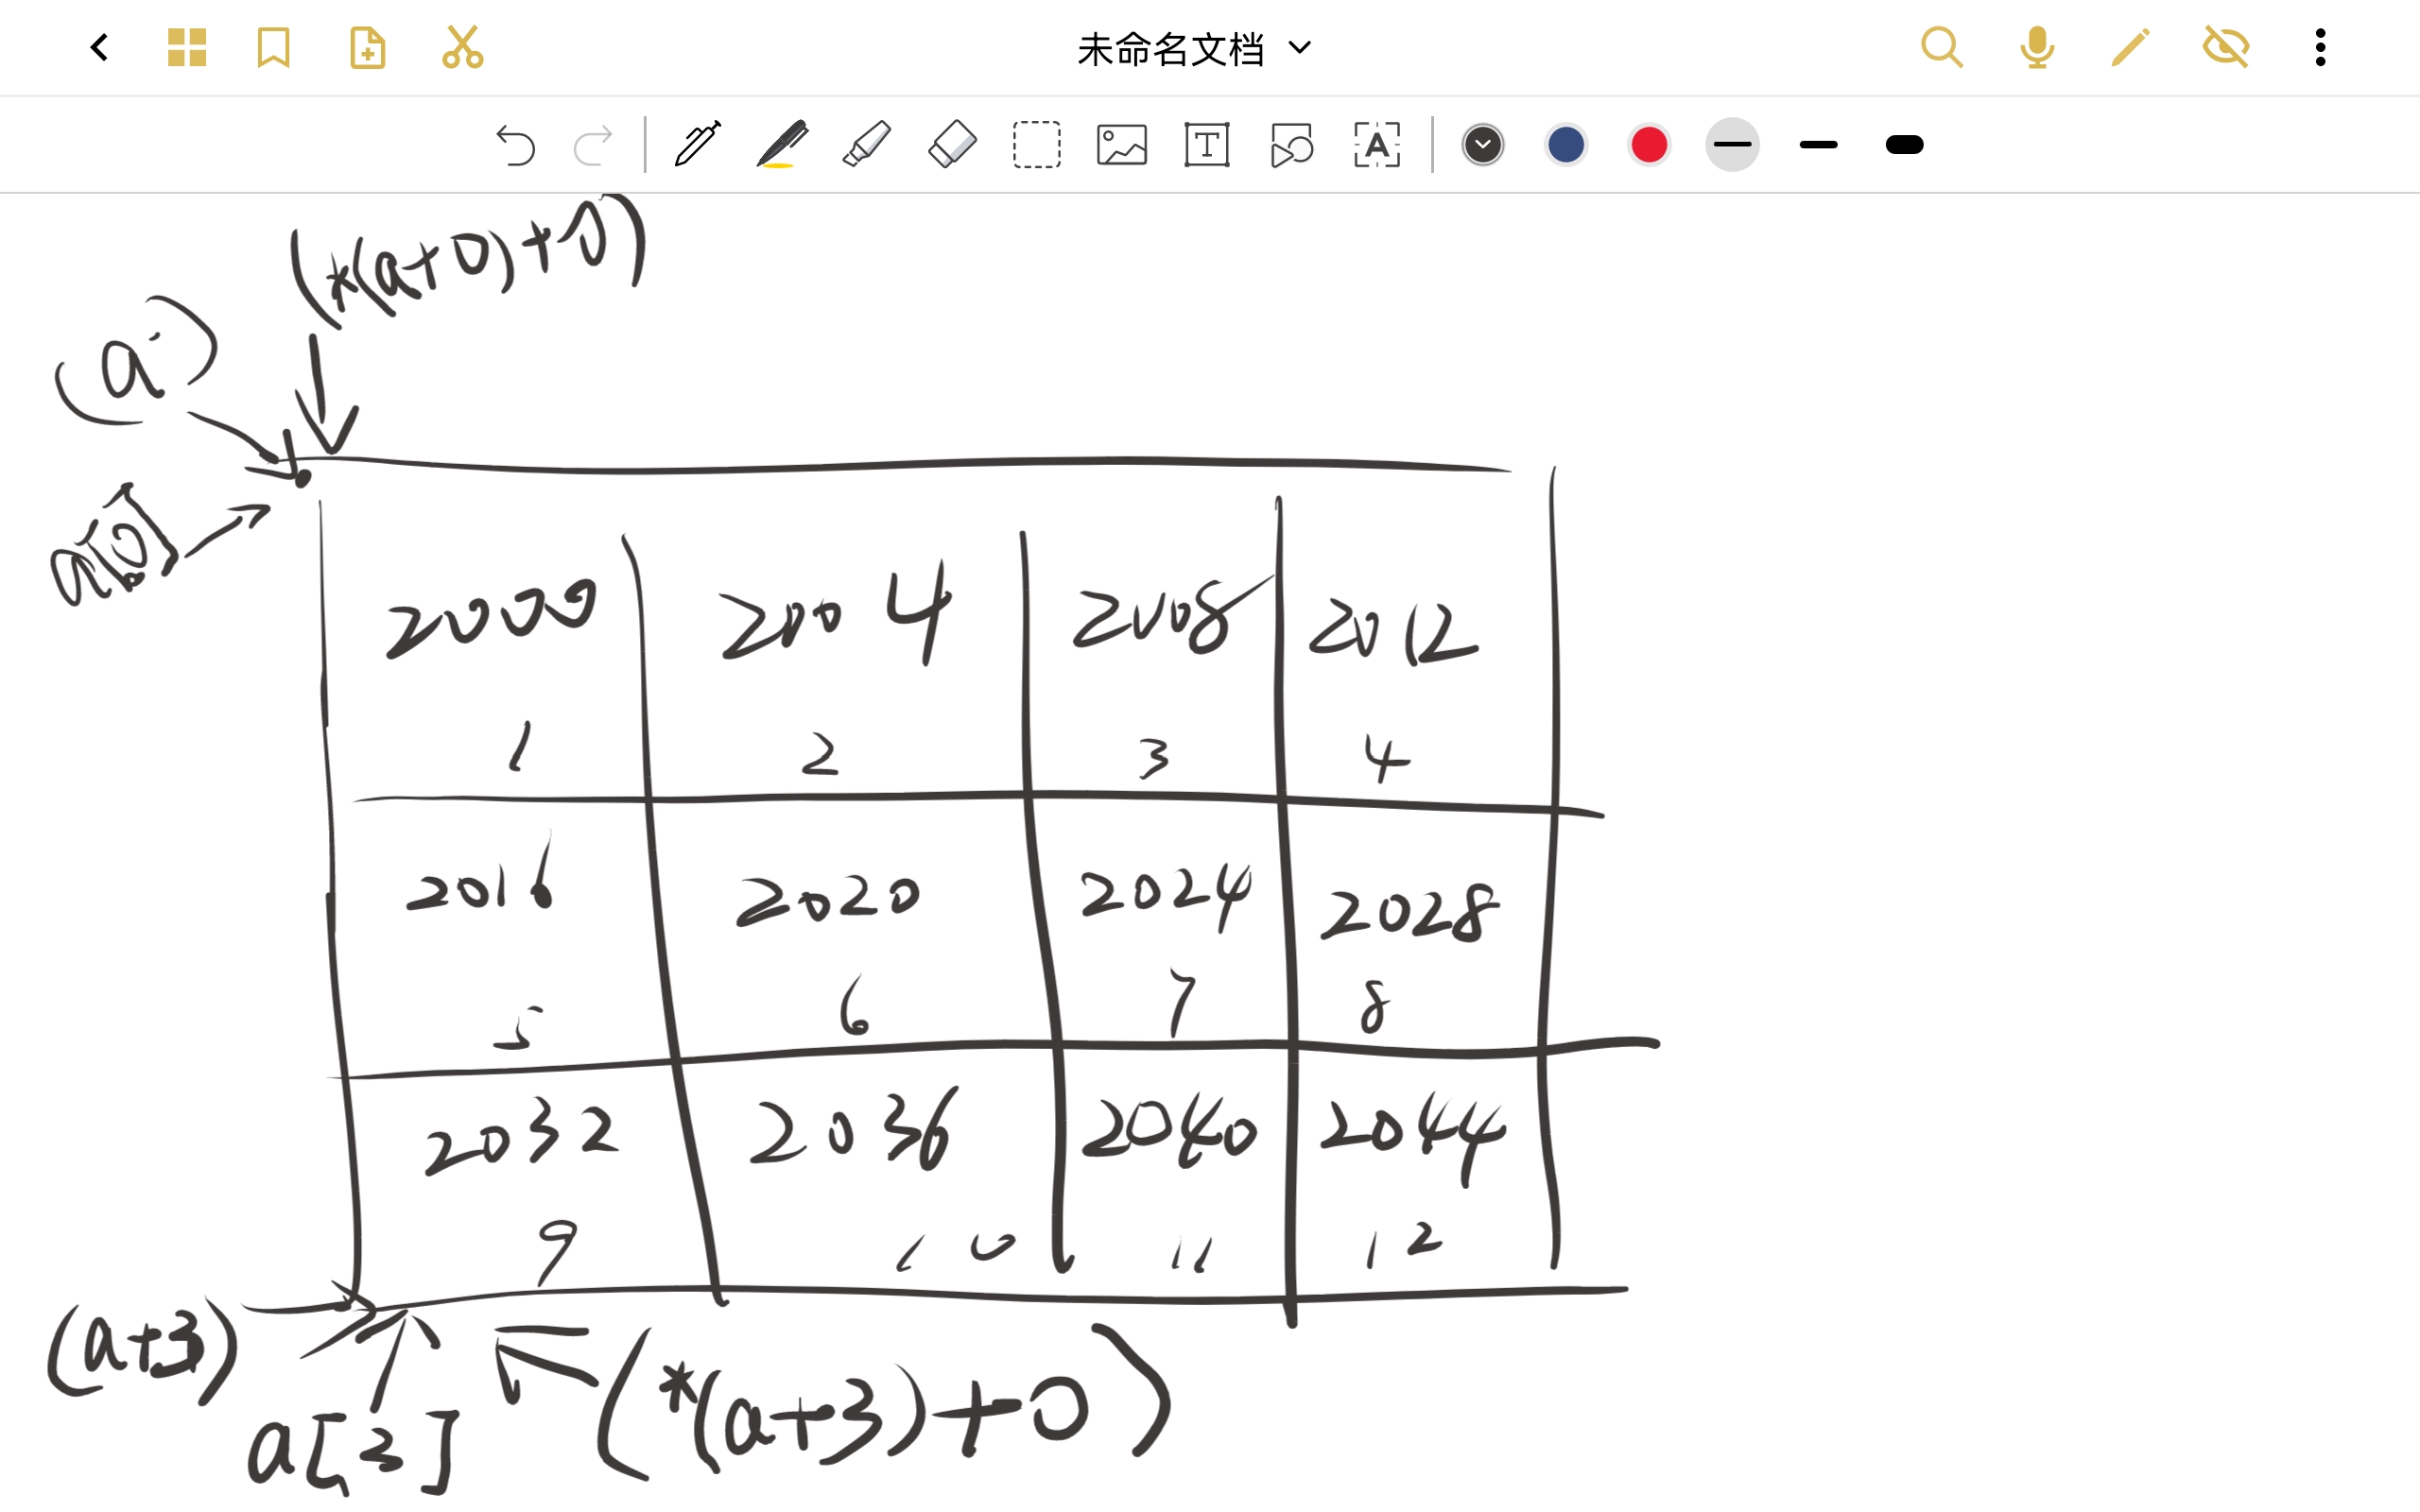 未命名文档
T
A
(*(a+0)+0)
(a)
a[0]
2000 2004 2008 2012
1 2 3 4
2016 2020 2024 2028
5 6 7 8
2032 2036 2040 2044
9 10 11 12
(a+3)
a[3]
(*(a+3)+0)